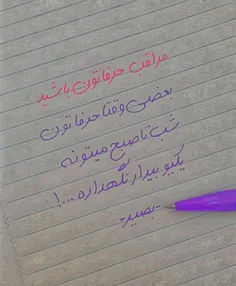 مراقب حرفاتون باشید
بعضی وقتا حرفاتون
شب تا صبح میتونه
یکیو بیدار نگهداره...!
-بصیر-